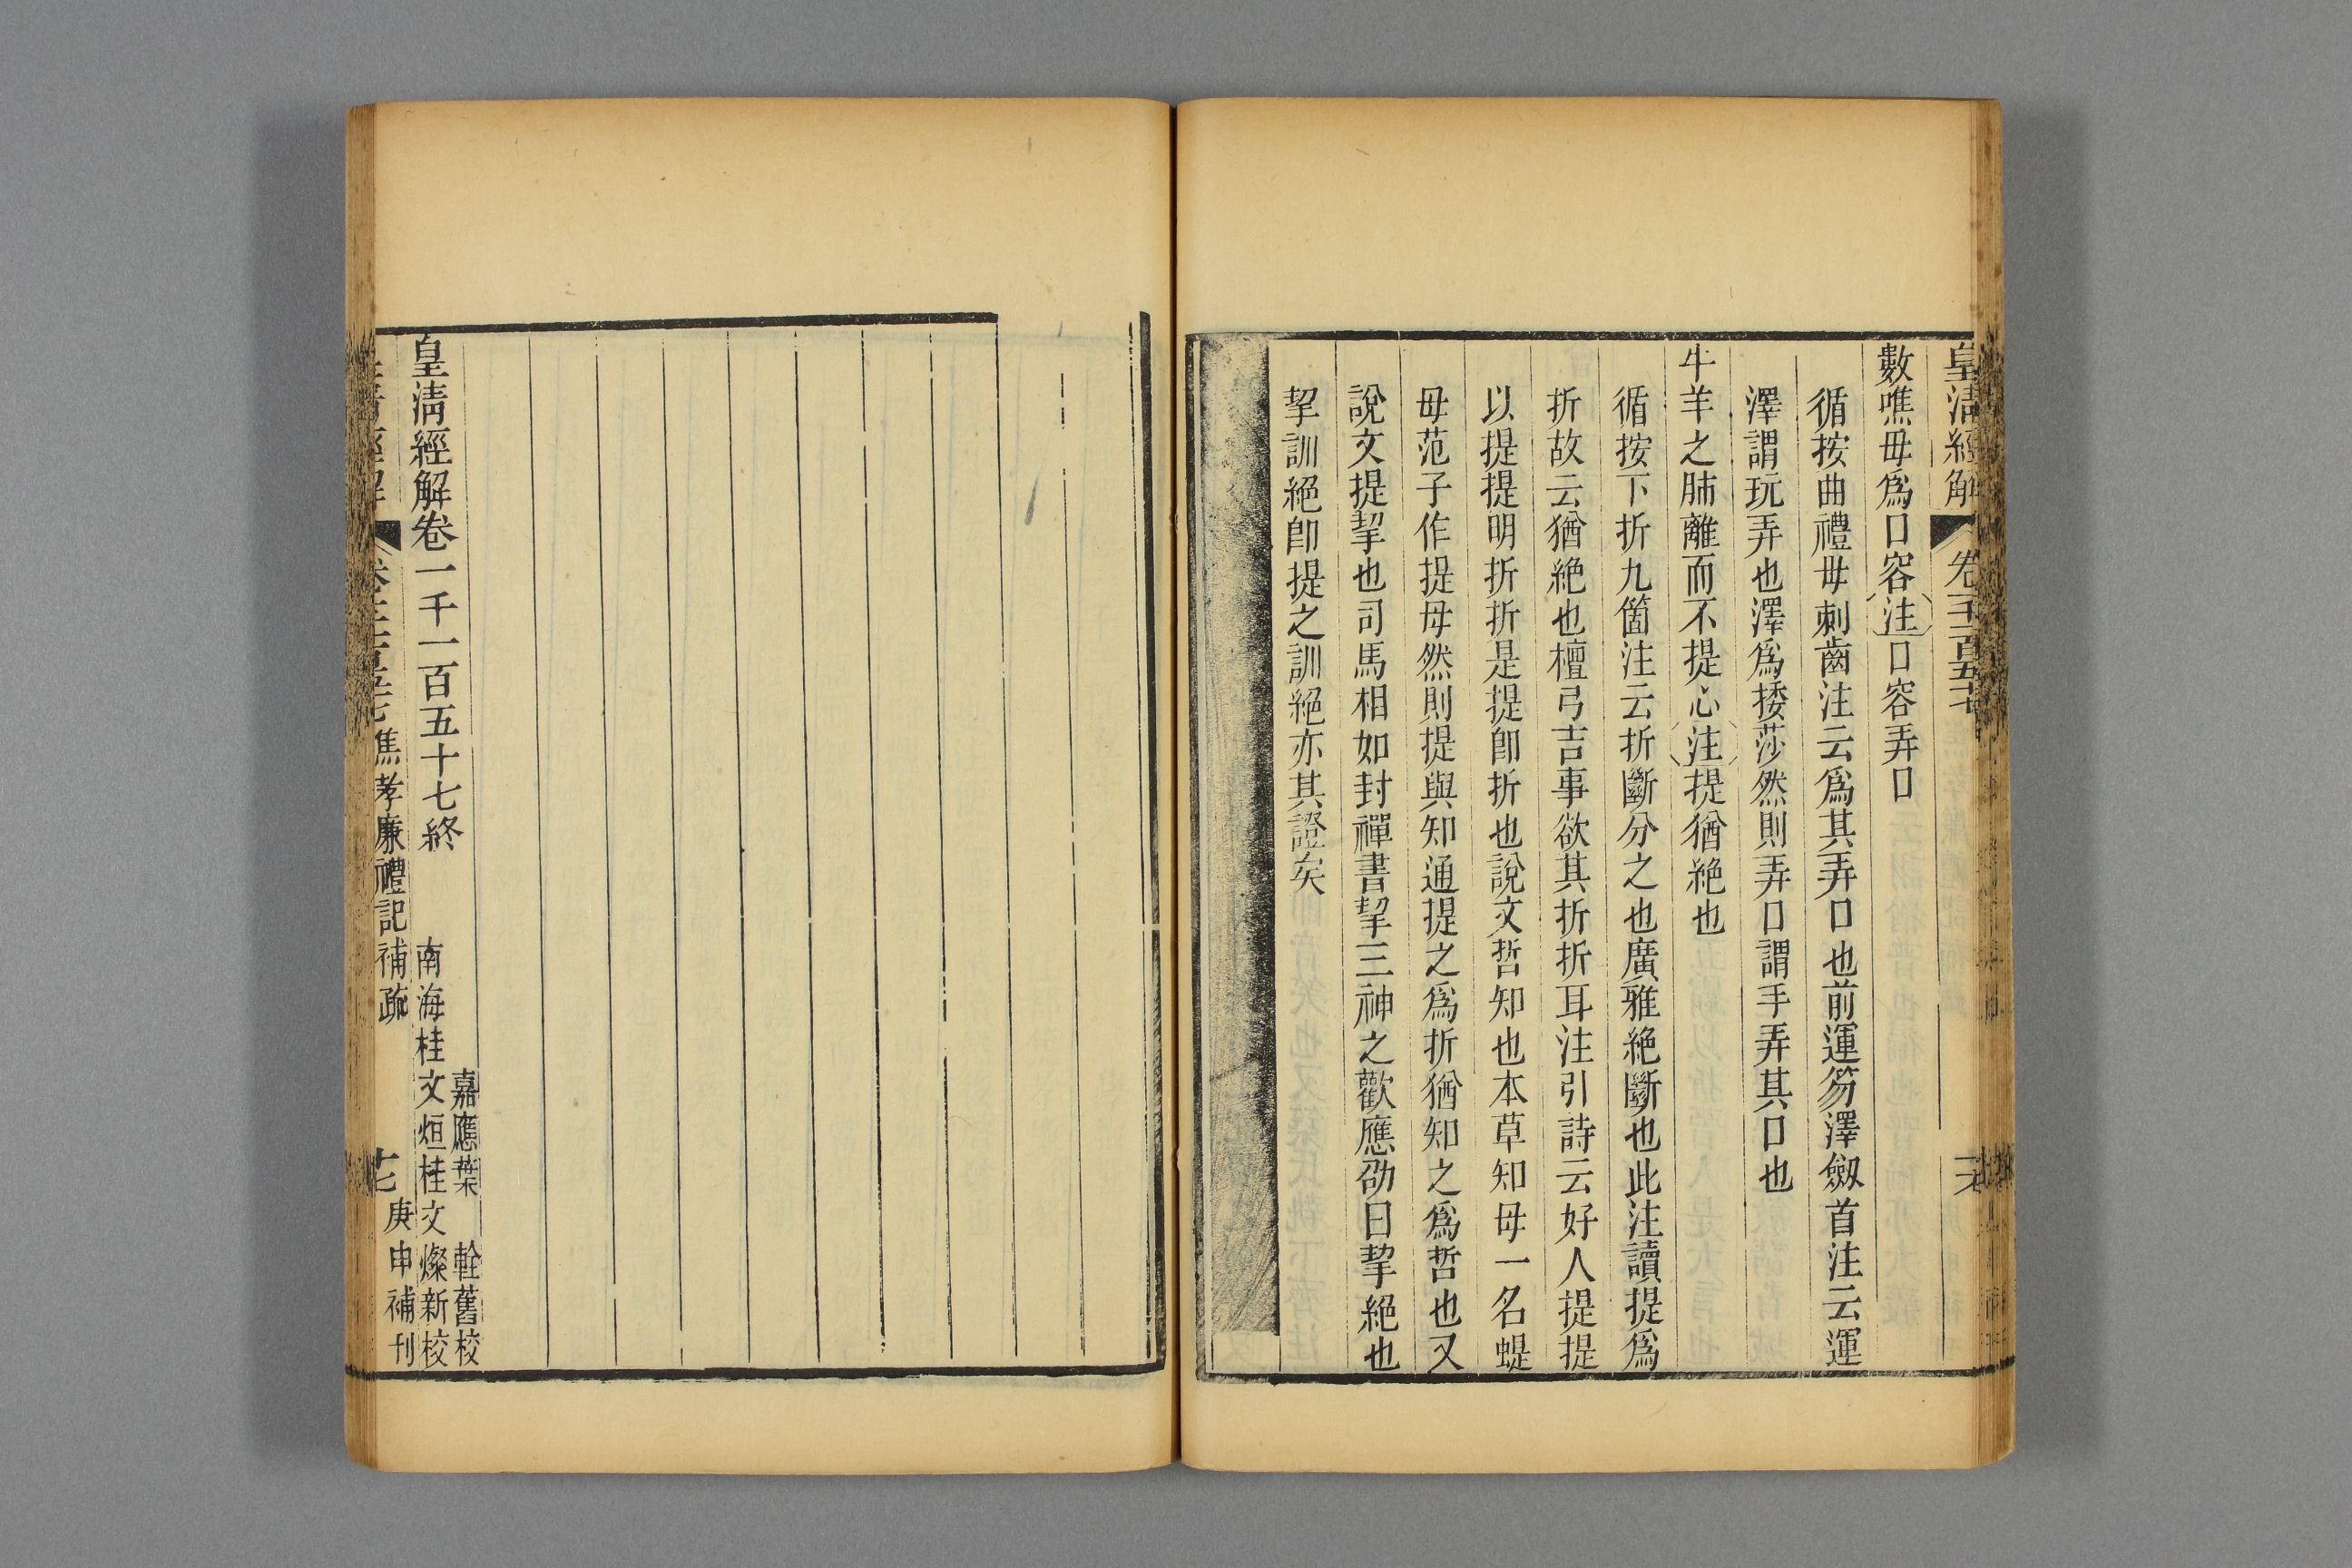 皇清經解
卷一千一百五十七
數噍毋爲口容注口容弄口
循按曲禮毋刺齒注云爲其弄口也前運笏澤劒首注云運
澤謂玩弄也澤爲捼莎然則弄口謂手弄其口也
牛羊之肺離而不提心注提猶絶也
循按下折九箇注云折斷分之也廣雅絶斷也此注讀提爲
折故云猶絶也檀弓吉事欲其折折耳注引詩云好人提提
以提提明折折是提卽折也說文哲知也本草知母一名蝭
母范子作提母然則提與知通提之爲折猶知之爲哲也又
說文提挈也司馬相如封禪書挈三神之歡應劭曰挈絶也
挈訓絕卽提之訓絕亦其證矣
嘉應葉 輇舊校
皇清經解卷一千一百五十七終
南海桂文烜桂文燦新校
焦孝廉禮記補疏
庚申補刊